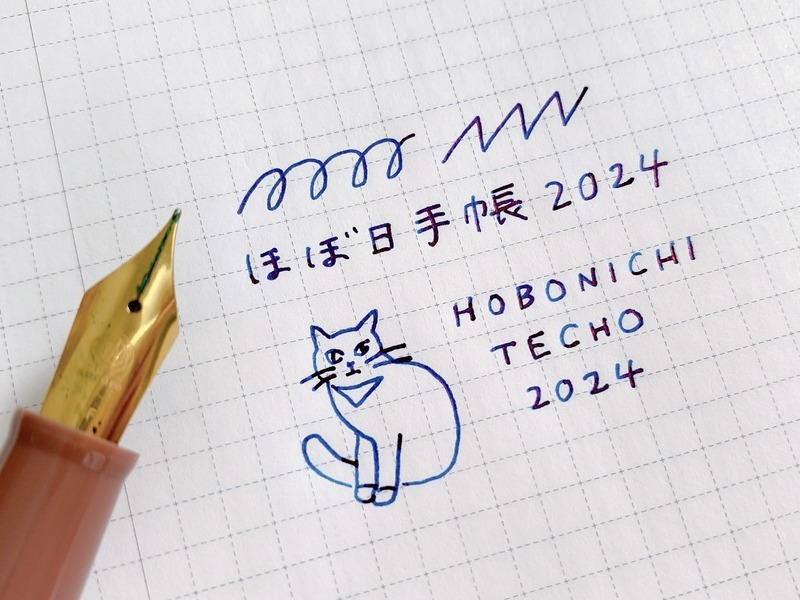 ほぼ日手帳 2024
HOBONICHI
TECHO
2024